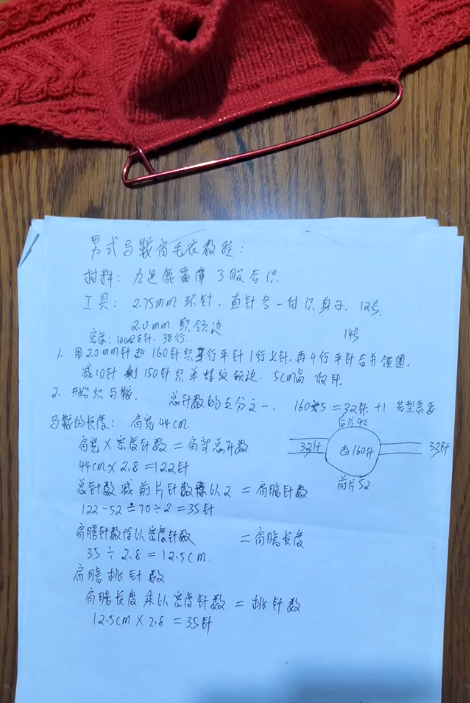 男式马鞍肩毛衣教程:
材料: 九色鹿 3股合织
工具: 2.75mm 环针, 直针各一付织身子, 12号
2.0mm 织领边 14号
密度: 10cm28针. 38行.
1. 用2.0mm针起160针织4行平针1行上针, 再4行平针合并领圈,
减10针 剩150针织单螺纹领边. 5cm高 收针.
2. 开始织马鞍. 总针数的五分之一. 160÷5=32针 +1 花型需要
马鞍的长度: 肩宽44cm.
肩宽×密度针数=肩部总针数
44cm×2.8=122针
总针数减前片针数除以2=肩膀针数
122-52=70÷2=35针
肩膀针数除以密度针数 =肩膀长度
35÷2.8=12.5cm.
肩膀挑针数
肩膀长度乘以密度针数=挑针数
12.5cm×2.8=35针
后片42
33针 起160针 33针
前片52